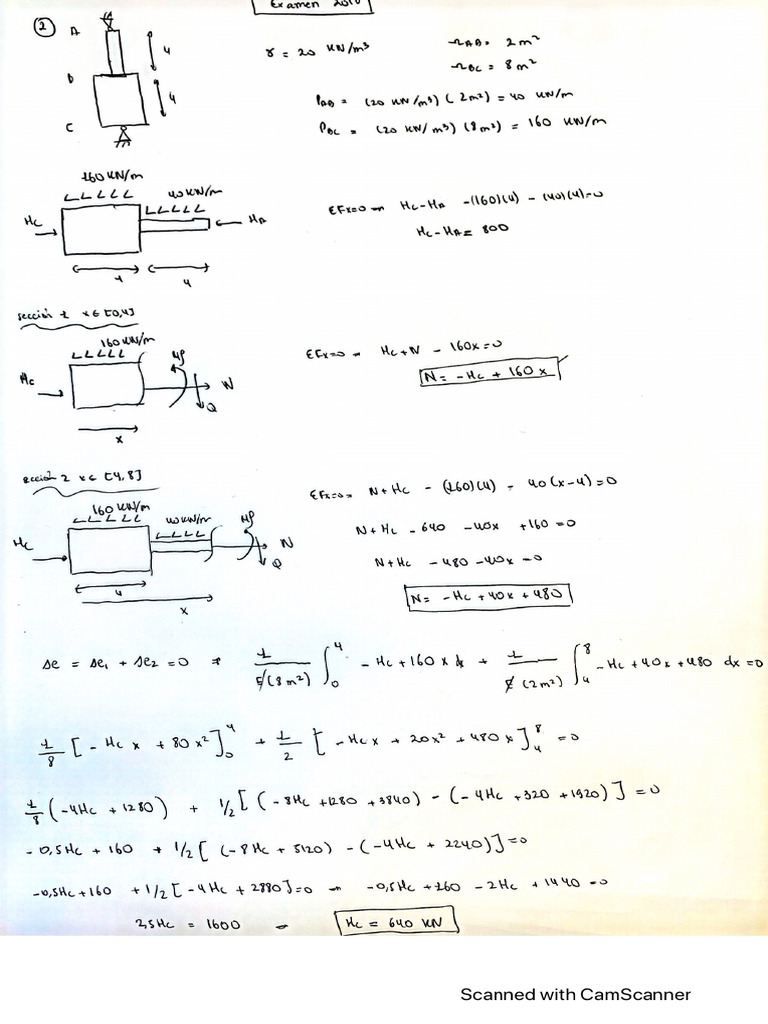 Examen 2010
② A
B
C
4
4
γ = 20 KN/m³
ΩAB = 2m²
ΩBC = 8m²
PAB = (20 KN/m³)(2m²) = 40 KN/m
PBC = (20 KN/m³)(8m²) = 160 KN/m
160 KN/m
40 KN/m
Hc
HA
4
4
ΣFx=0 → Hc-HA -(160)(4) - (40)(4)=0
Hc-HA = 800
sección 1 x∈[0,4]
160 KN/m
Hc
Mf
N
Q
x
ΣFx=0 → Hc+N - 160x=0
N = -Hc + 160x
sección 2 x∈[4,8]
160 KN/m
40 KN/m
Hc
Mf
N
Q
4
x
ΣFx=0 → N+Hc - (160)(4) - 40(x-4)=0
N+Hc - 640 - 40x + 160 = 0
N+Hc - 480 - 40x = 0
N = -Hc + 40x + 480
Δe = Δe₁ + Δe₂ = 0 → 1/E(8m²) ∫₀⁴ -Hc+160x dx + 1/E(2m²) ∫₄⁸ -Hc+40x+480 dx=0
1/8 [-Hc x + 80x²]₀⁴ + 1/2 [-Hcx + 20x² + 480x]₄⁸ = 0
1/8 (-4Hc + 1280) + 1/2 [(-8Hc +1280 +3840) - (-4Hc +320 +1920)] = 0
-0,5Hc + 160 + 1/2 [(-8Hc + 5120) - (-4Hc + 2240)]=0
-0,5Hc+160 + 1/2[-4Hc + 2880]=0 → -0,5Hc +160 - 2Hc + 1440=0
2,5Hc = 1600 → Hc = 640 KN
Scanned with CamScanner